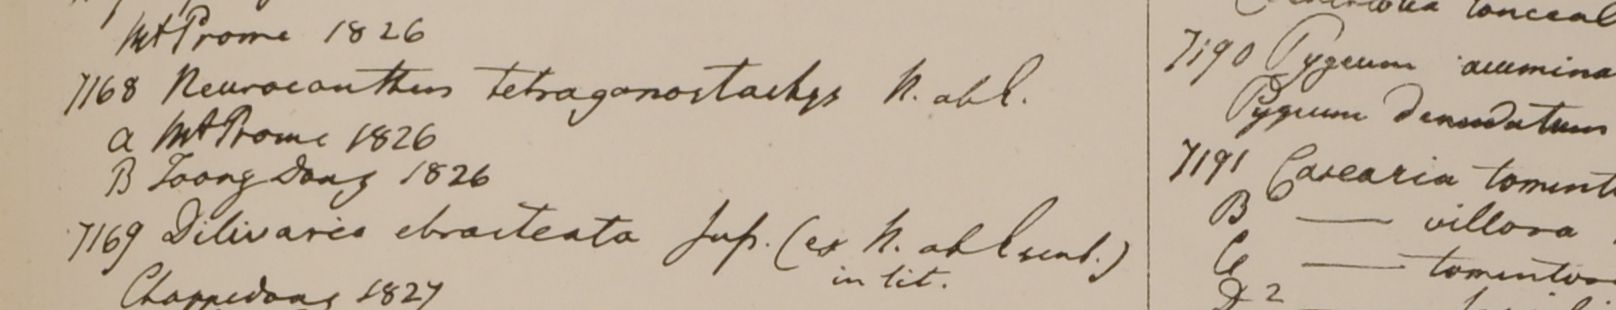 Mt Prome 1826
7168 Neuracanthus tetragonostachys N. ab E.
a Mt Prome 1826
B Toong Dong 1826
7169 Dilivaria ebracteata Sup. (ex N. ab Esenb.)
in lit.
Chappedong 1827
7190 Pygeum acumina
Pygeum denudatum
7191 Casearia toment
B — villosa
C — tomentos
D 2